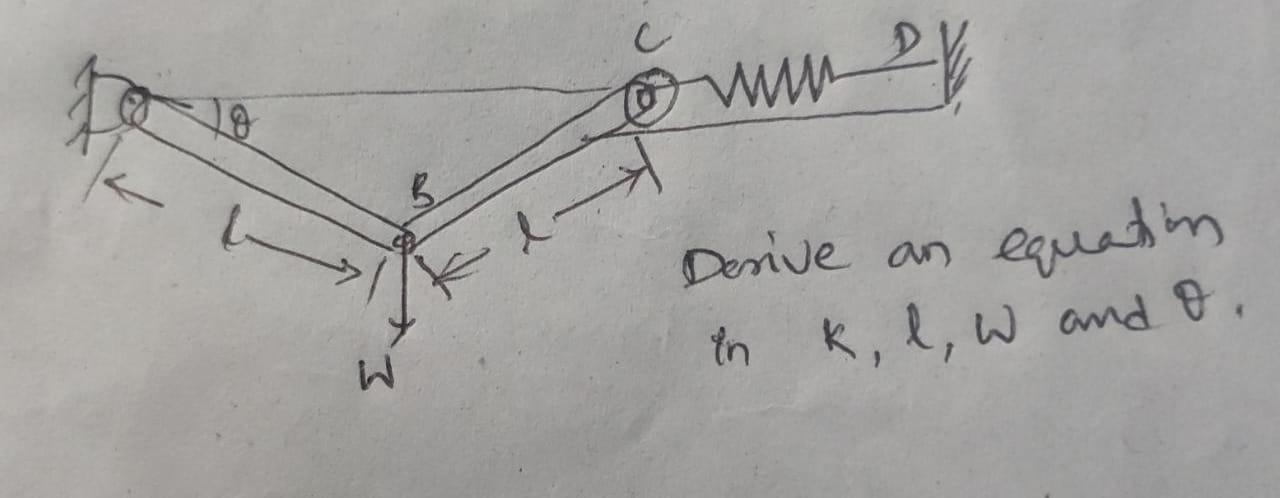 C
D
θ
B
l
l
W
Derive an equation
in k, l, W and θ.